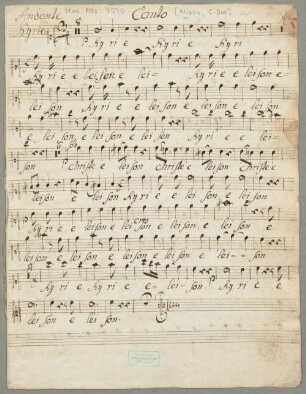 Andante Mus. Mss. 7570 Canto Missa, C-Dur
Kyrie
Kyrie Kyrie Kyri
e e lei son e lei- Kyrie e lei son e-
lei son Kyri e e lei son e lei son
e lei son e lei son Kyri e e lei-
son Christe e lei son Christe e lei son Christe e
lei son e lei son Kyri e e lei son e lei son
Kyri e e lei son e lei son e lei son e lei
son e lei son e lei son e lei - - son
Kyri e Kyri e e - lei - son Kyri e e
lei son e lei son.